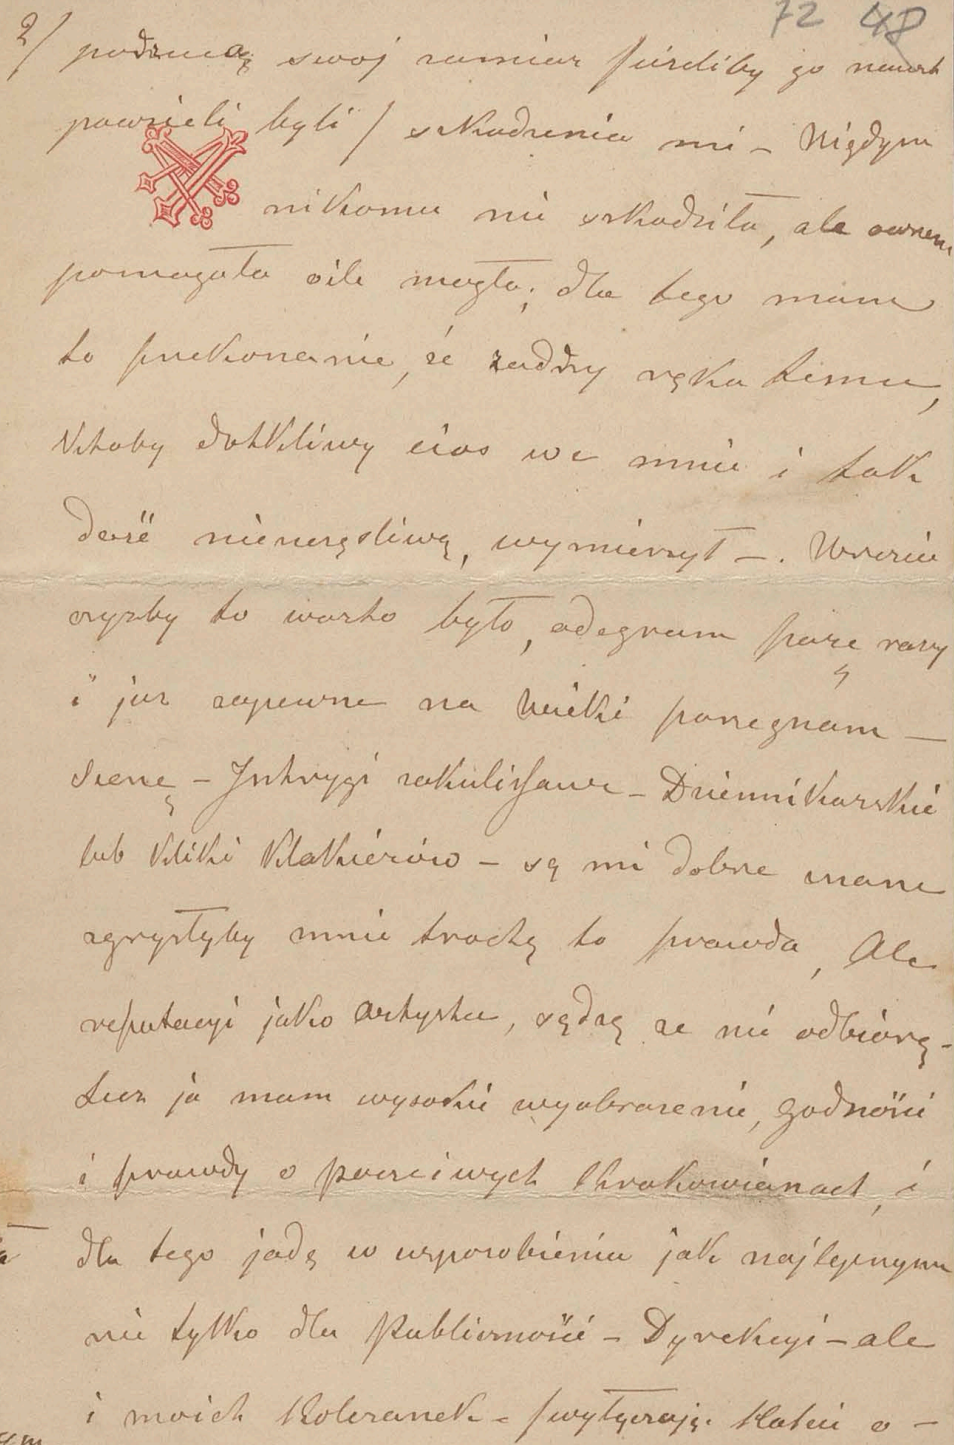 72 48
2/ podrzucą swoj zamiar /jeśliby go nawet
powzieli byli / szkodzenia mi – Nigdym
nikomu nie szkodziła, ale owszem
pomagała o ile mogła; dla tego mam
to przekonanie, że zadrży ręka temu,
ktoby dotkliwy cios we mnie i tak
dość nieszczęśliwą, wymierzył –. Wreszcie
czyżby to warto było, odegram parę razy
i już zapewne na wieki pożegnam –
Scenę – Intrygi zakulisowe – Dziennikarskie
lub kliki klakierów – są mi dobrze znane
zgryzłyby mnie trochę to prawda, Ale
reputacyi jako artystce, sądzę ze nie odbiorą –
Lecz ja mam wysokie wyobrazenie, godności
i prawdy o poczciwych Krakowianach, i
dla tego jadę w usposobieniu jak najlepszym
nie tylko dla Publiczności – Dyrekcyi – ale
i moich Kolezanek –